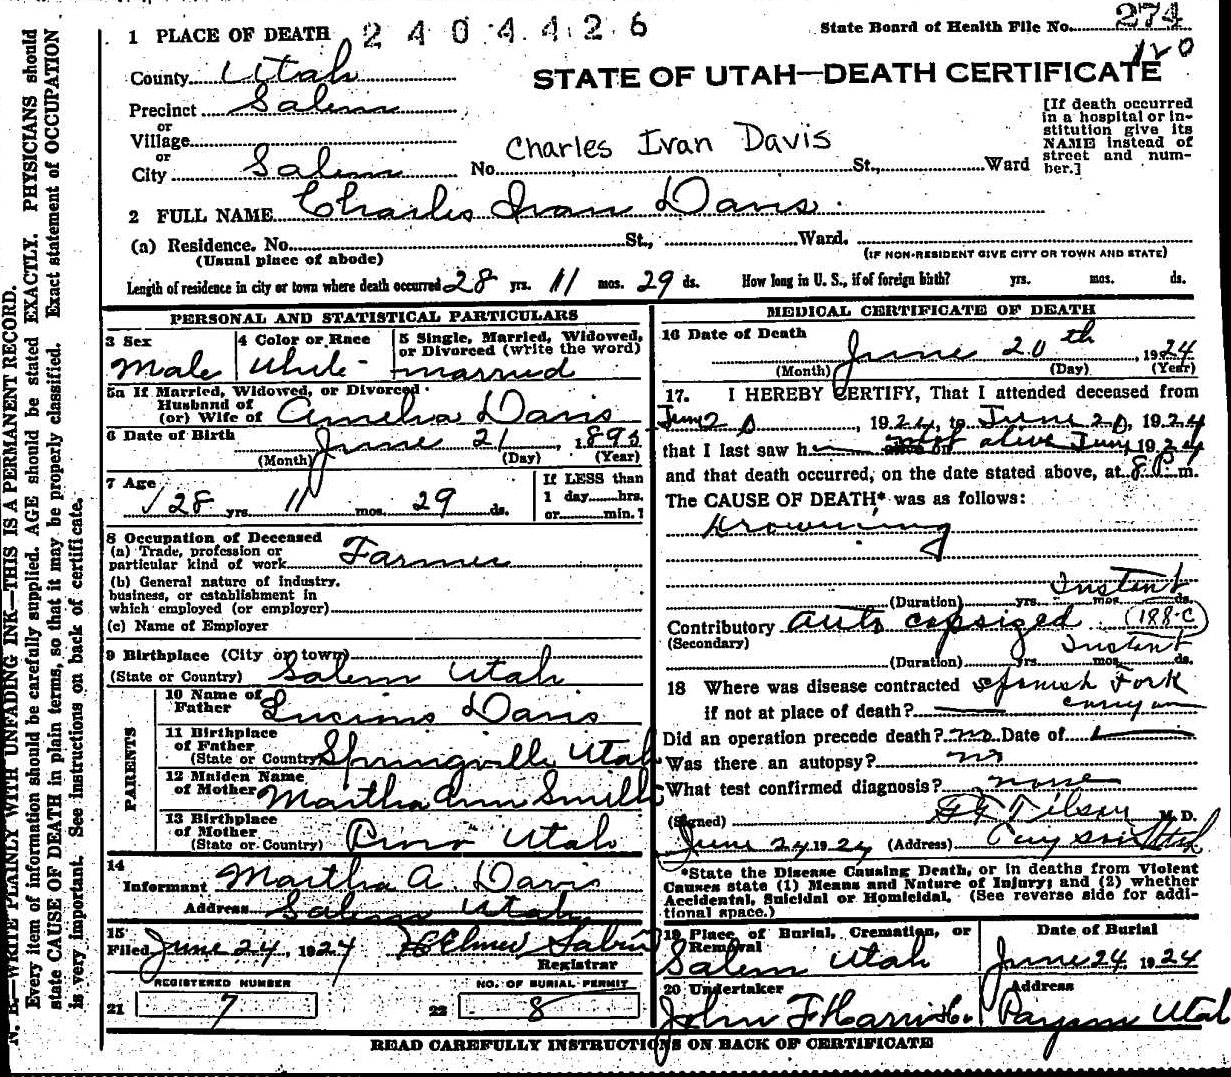 1 PLACE OF DEATH 2404426
State Board of Health File No. 274
120
County Utah
STATE OF UTAH—DEATH CERTIFICATE
Precinct Salem
or
Village
or
City Salem No. Charles Ivan Davis St., Ward
[If death occurred in a hospital or in-
stitution give its
NAME instead of
street and num-
ber.]
2 FULL NAME Charles Ivan Davis
(a) Residence. No. St., Ward.
(Usual place of abode)
(IF NON-RESIDENT GIVE CITY OR TOWN AND STATE)
Length of residence in city or town where death occurred 28 yrs. 11 mos. 29 ds. How long in U. S., if of foreign birth? yrs. mos. ds.
PERSONAL AND STATISTICAL PARTICULARS
3 Sex Male
4 Color or Race White
5 Single, Married, Widowed,
or Divorced (write the word)
married
5a If Married, Widowed, or Divorced
Husband of
(or) Wife of Amelia Davis
6 Date of Birth June 21 1895
(Month) (Day) (Year)
7 Age 28 yrs. 11 mos. 29 ds.
If LESS than
1 day hrs.
or min.?
8 Occupation of Deceased
(a) Trade, profession or
particular kind of work Farmer
(b) General nature of industry,
business, or establishment in
which employed (or employer)
(c) Name of Employer
9 Birthplace (City or town)
(State or Country) Salem Utah
PARENTS
10 Name of
Father Lucious Davis
11 Birthplace
of Father
(State or Country) Springville Utah
12 Maiden Name
of Mother Martha Ann
13 Birthplace
of Mother
(State or Country) Provo Utah
14
Informant Martha A. Davis
Address Salem Utah
15
Filed June 24, 1924 Elmer
Registrar
REGISTERED NUMBER
21 7
NO. OF BURIAL PERMIT
22 8
MEDICAL CERTIFICATE OF DEATH
16 Date of Death June 20th, 1924
(Month) (Day) (Year)
17. I HEREBY CERTIFY, That I attended deceased from
June 20, 1924, to June 20, 1924
that I last saw h alive on June 1924
and that death occurred, on the date stated above, at 8 P m.
The CAUSE OF DEATH* was as follows:
Drowning
Instant
(Duration) yrs. mos. ds.
Contributory auto capsized (188-c)
(Secondary)
Instant
(Duration) yrs. mos. ds.
18 Where was disease contracted Spanish Fork
if not at place of death? canyon
Did an operation precede death? no Date of
Was there an autopsy? no
What test confirmed diagnosis? none
(Signed) Tilson M. D.
June 24 1924 (Address) Payson Utah
*State the Disease Causing Death, or in deaths from Violent
Causes state (1) Means and Nature of Injury; and (2) whether
Accidental, Suicidal or Homicidal. (See reverse side for addi-
tional space.)
19 Place of Burial, Cremation, or
Removal
Salem Utah
Date of Burial
June 24 1924
20 Undertaker
John F Harris
Address
Payson Utah
READ CAREFULLY INSTRUCTIONS ON BACK OF CERTIFICATE
N. B.—WRITE PLAINLY WITH UNFADING INK—THIS IS A PERMANENT RECORD.
Every item of information should be carefully supplied. AGE should be stated EXACTLY. PHYSICIANS should
state CAUSE OF DEATH in plain terms, so that it may be properly classified. Exact statement of OCCUPATION
is very important. See instructions on back of certificate.